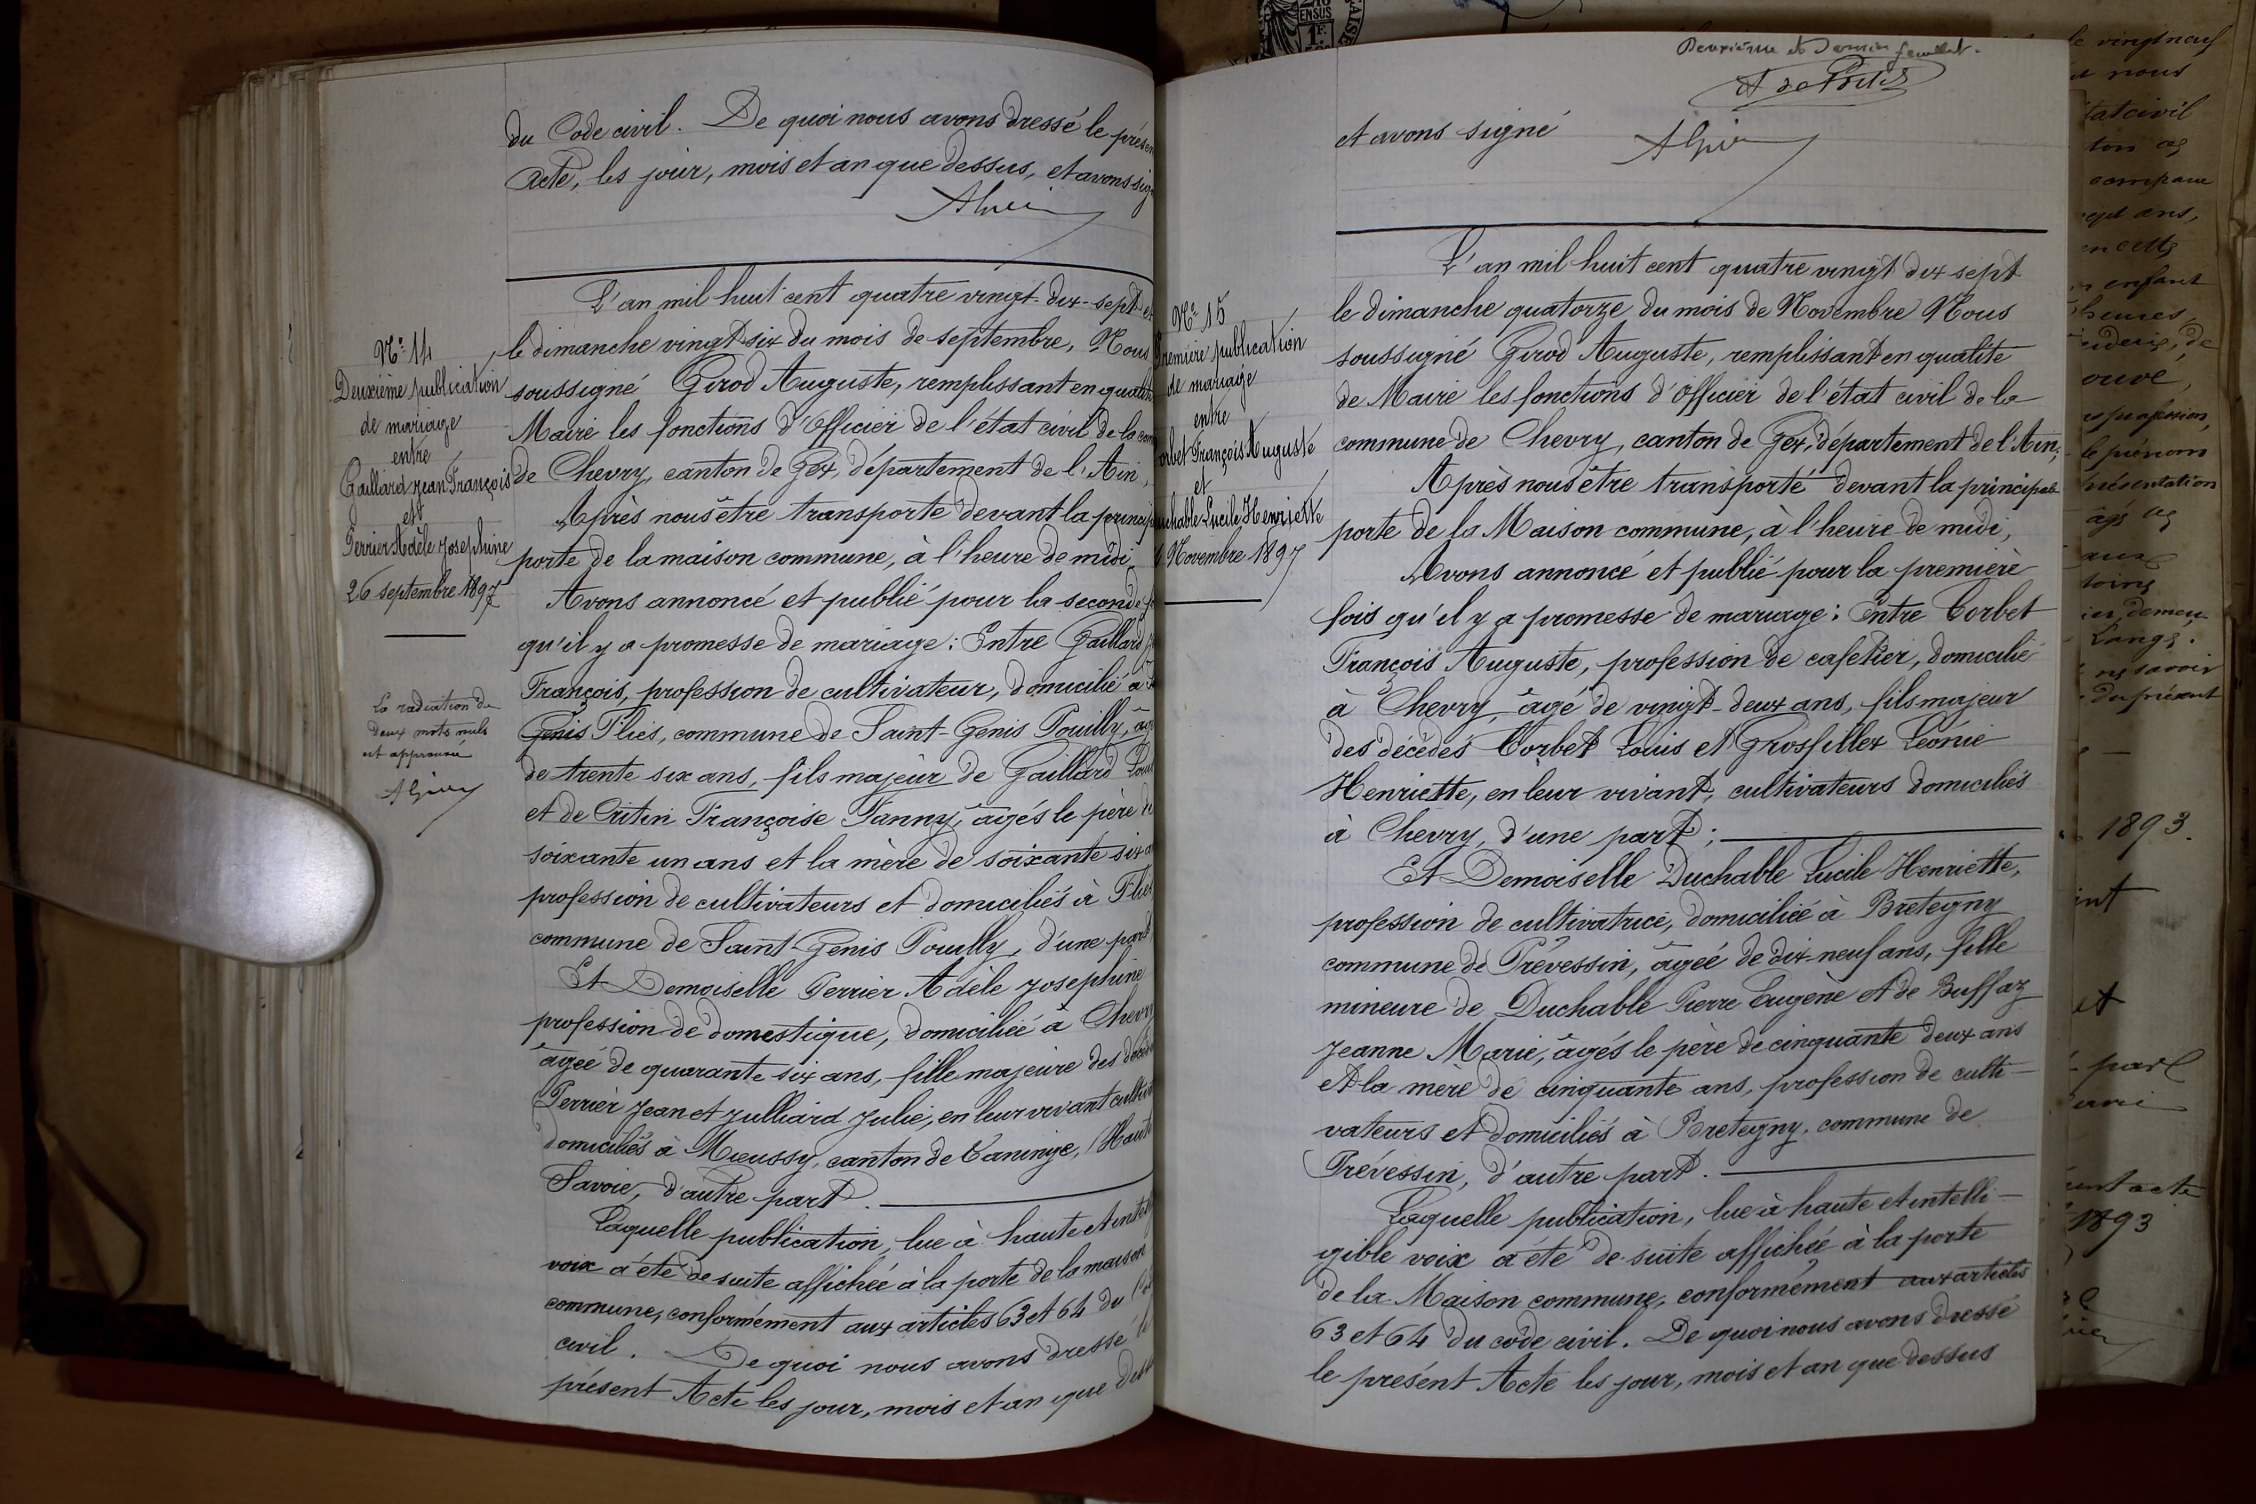 du Code civil. De quoi nous avons dressé le présen
Acte, les jour, mois et an que dessus, et avons sig
N.º 14
Deuxième publication
de mariage
entre
Gaillard Jean François
et
Perrier Adèle Josephine
26 septembre 1897
La radiation de
deux mots nuls
est approuvée
L'an mil huit cent quatre vingt-dix-sept et
le dimanche vingt six du mois de septembre, Nous
soussigné Girod Auguste, remplissant en qualité
Maire les fonctions d'Officier de l'état civil de la com
de Chevry, canton de Gex, département de l'Ain,
Après nous être transporté devant la princip
porte de la maison commune, à l'heure de midi
Avons annoncé et publié pour la seconde f
qu'il y a promesse de mariage : Entre Gaillard
François, profession de cultivateur, domicilié à
Genis Flies, commune de Saint-Genis Pouilly, âg
de trente six ans, fils majeur de Gaillard Loui
et de Critin Françoise Fanny, âgés le père de
soixante un ans et la mère de soixante six a
profession de cultivateurs et domiciliés à Flies
commune de Saint-Genis Pouilly, d'une part
Et Demoiselle Perrier Adèle Josephine
profession de domestique, domiciliée à Chevry
âgée de quarante six ans, fille majeure des décéd
Perrier Jean et Julliard Julie, en leur vivant cultiv
domiciliés à Mieussy, canton de Taninge, (Haute
Savoie, d'autre part.
Laquelle publication, lue à haute et intel
voix a été de suite affichée à la porte de la maison
commune, conformément aux articles 63 et 64 du Co
civil. De quoi nous avons dressé le
présent Acte les jour, mois et an que dess
Deuxième et dernier feuillet.
et avons signé
N.º 15
Première publication
de mariage
entre
orbet François Auguste
et
uchable Lucile Henriette
Novembre 1897
L'an mil huit cent quatre vingt dix sept
le dimanche quatorze du mois de Novembre Nous
soussigné Girod Auguste, remplissant en qualité
de Maire les fonctions d'Officier de l'état civil de la
commune de Chevry, canton de Gex, département de l'Ain;
Après nous être transporté devant la principale
porte de la Maison commune, à l'heure de midi,
Avons annoncé et publié pour la première
fois qu'il y a promesse de mariage : Entre Corbet
François Auguste, profession de cafetier, domicilié
à Chevry, âgé de vingt-deux ans, fils majeur
des décédés Corbet Louis et Grosfillex Léonie
Henriette, en leur vivant, cultivateurs domiciliés
à Chevry, d'une part ;
Et Demoiselle Duchable Lucile Henriette,
profession de cultivatrice, domiciliée à Bretegny
commune de Prévessin, âgée de dix-neuf ans, fille
mineure de Duchable Pierre Eugène et de Buffaz
Jeanne Marie, âgés le père de cinquante deux ans
et la mère de cinquante ans, profession de culti-
vateurs et domiciliés à Bretegny, commune de
Prévessin, d'autre part.
Laquelle publication, lue à haute et intelli-
gible voix a été de suite affichée à la porte
de la Maison commune, conformément aux articles
63 et 64 du code civil. De quoi nous avons dressé
le présent Acte les jour, mois et an que dessus
le vingt neuf
nous
tat civil
ept ans,
en cette
enfant
heures,
profession,
le prénom
présentation
demeu
savoir
du présent
1893.
et
part
acte
1893